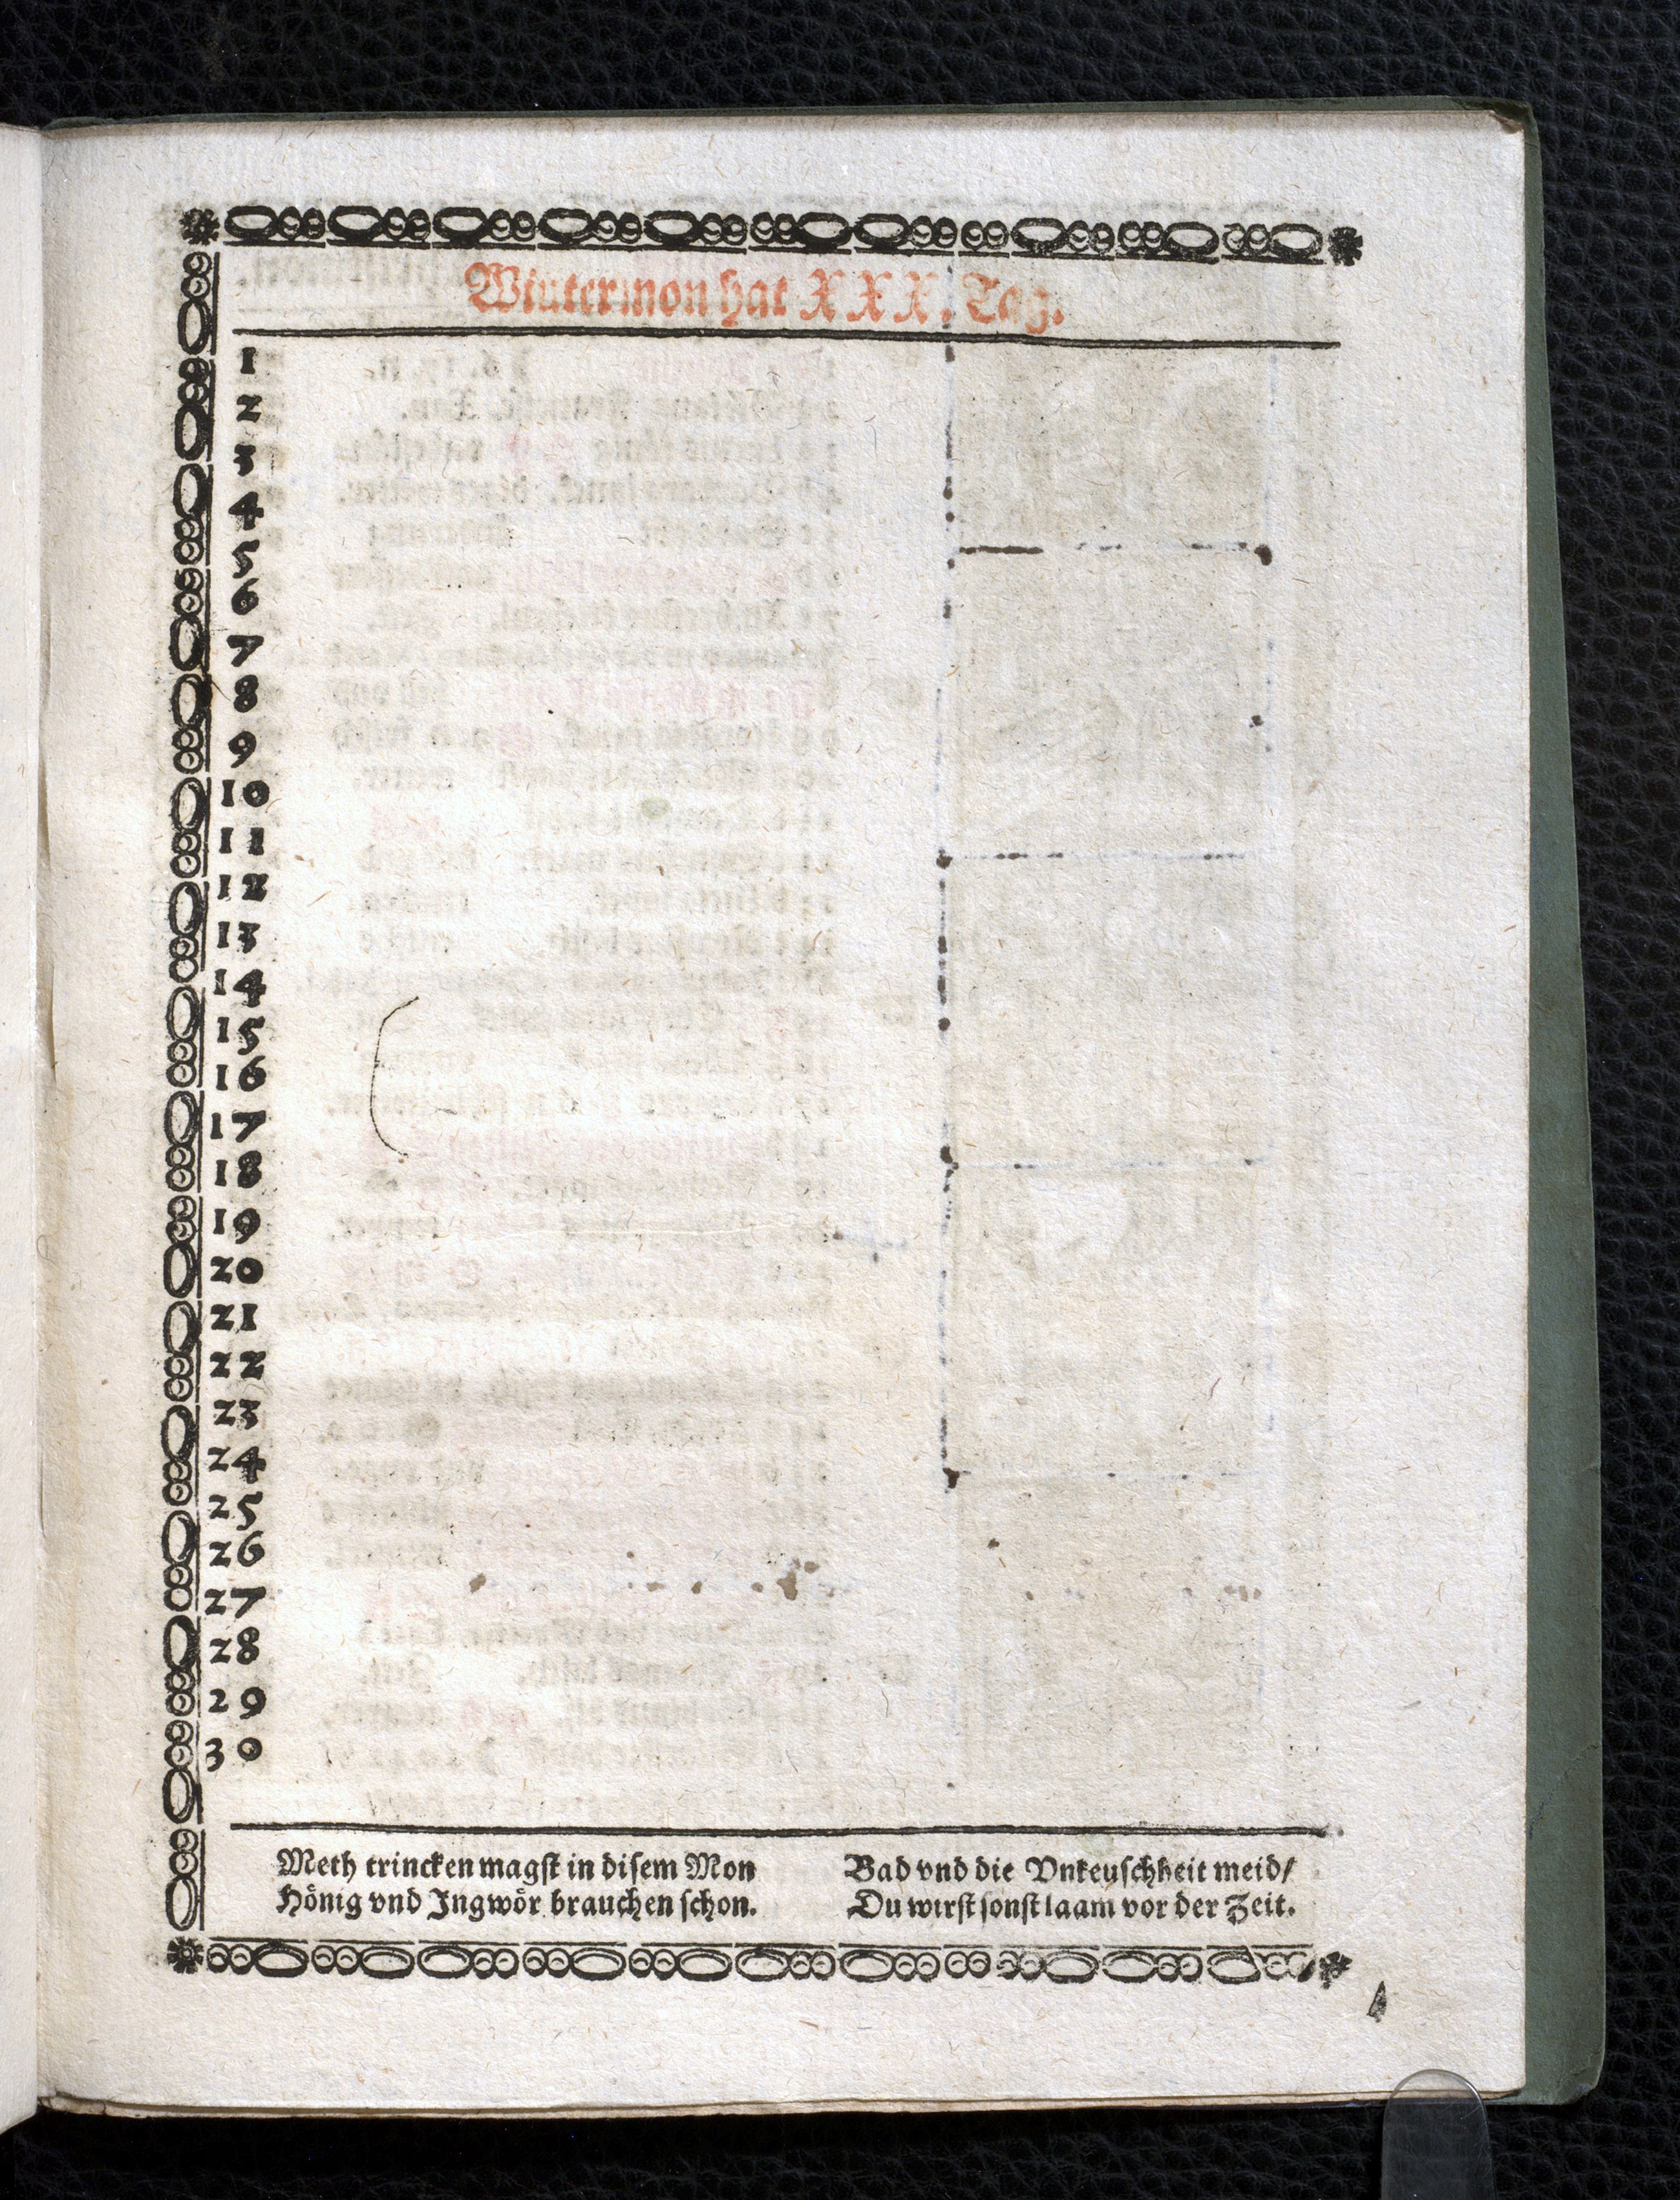 Wintermon hat XXX. Tag.
1
2
3
4
5
6
7
8
9
10
11
12
13
14
15
16
17
18
19
20
21
22
23
24
25
26
27
28
29
30
Meth trincken magst in disem Mon
Hönig vnd Ingwör brauchen schon.
Bad vnd die Vnkeuschheit meid/
Du wirst sonst laam vor der Zeit.